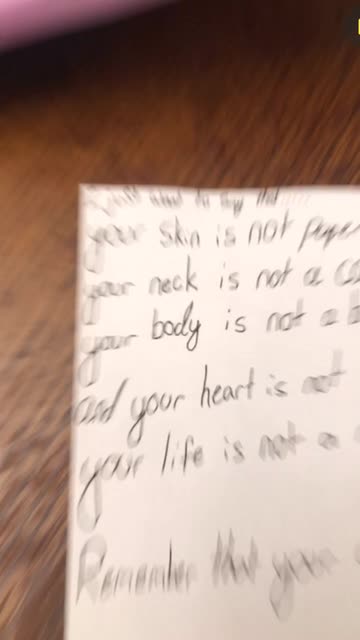 I just want to say that
your skin is not paper
your neck is not a
your body is not a
and your heart is not
your life is not a
Remember that your